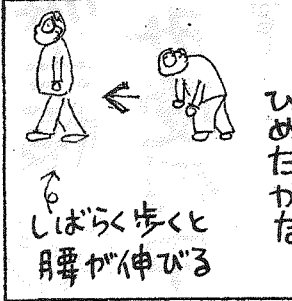 ひめたかな
しばらく歩くと
腰が伸びる